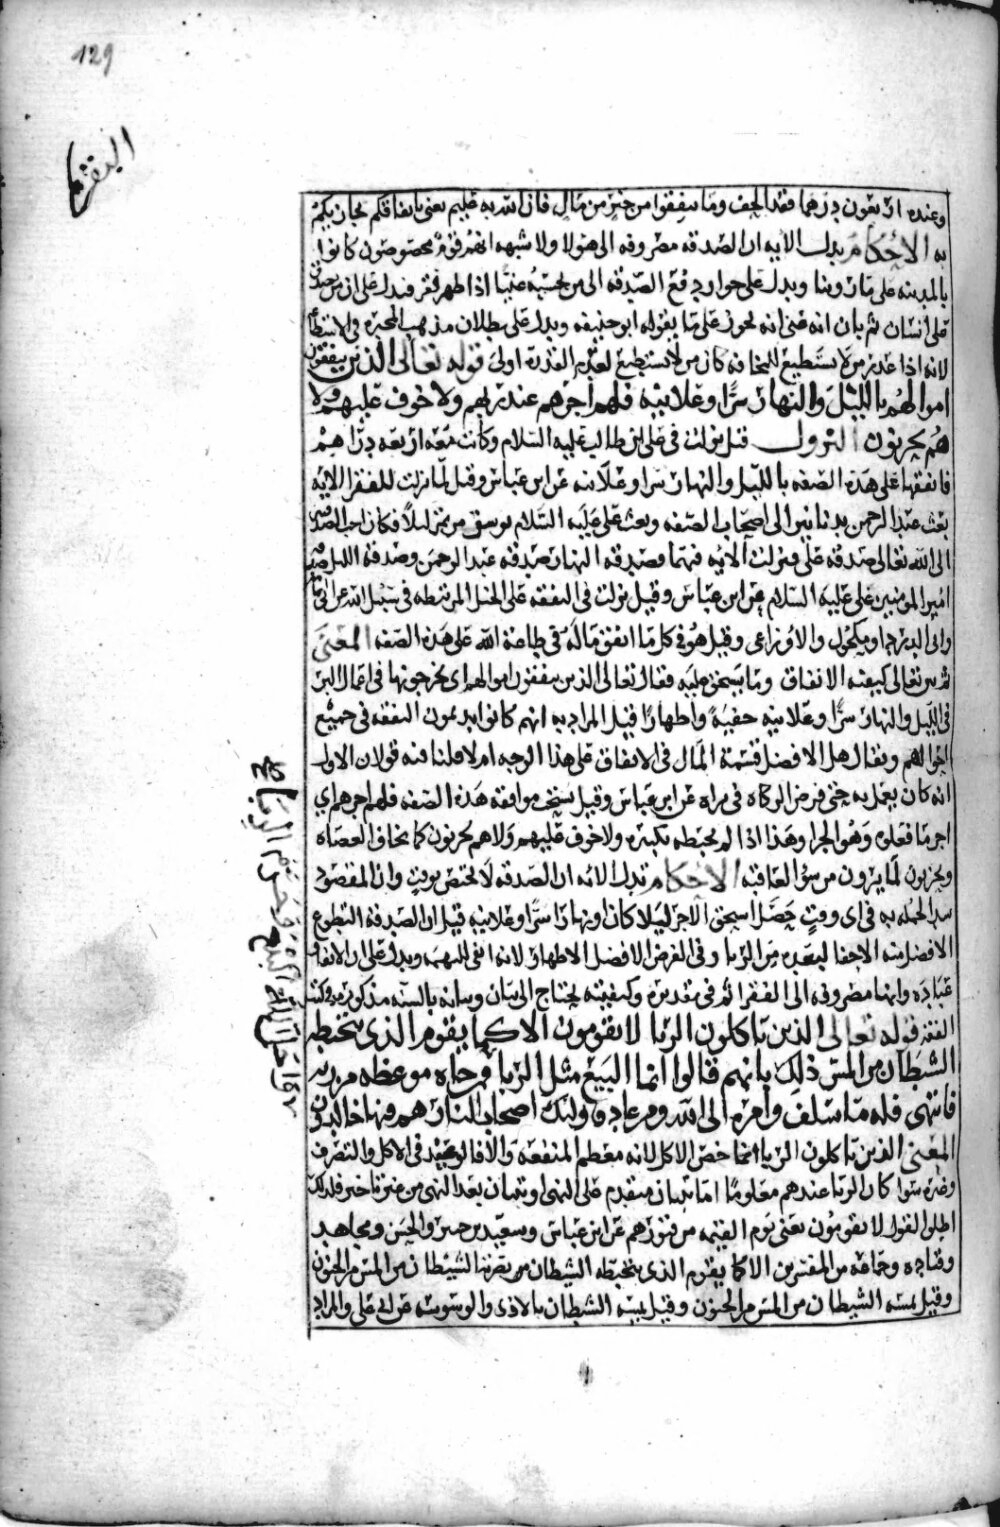 129
البقرة
وعنده اربعون درهما فقد الحف وما تنفقوا من خير من مال فان الله به عليم يعني بانفاقكم يجازيكم
به الاحكام يدل الايه ان الصدقه مصروفه الى هولا ولا شبهه انهم قوم مخصوصون كانوا
بالمدينه على ما روينا ويدل على جواز دفع الصدقه الى من يحسبه غنيا اذا ظهر فقره ويدل على ان من تصدق
على انسان ثم بان انه غني انه يجوز على ما يقوله ابو حنيفه ويدل على بطلان مذهب المجبره في الاستطاعه
لانه اذا عذر من لا يستطيع للمخافه كان من لا يستطيع لعدم القدره اولى قوله تعالى الذين ينفقون
اموالهم بالليل والنهار سرا وعلانيه فلهم اجرهم عند ربهم ولا خوف عليهم ولا
هم يحزنون النزول قيل نزلت في علي ابن طالب عليه السلام وكانت معه اربعه دراهم
فانفقها على هذه الصفه بالليل والنهار سرا وعلانيه عن ابن عباس وقيل لما نزلت للفقرا الايه
بعث عبد الرحمن بدنانير الى اصحاب الصفه وبعث علي عليه السلام بوسق من تمر ليلا فكان احب الصدقتين
الى الله تعالى صدقه علي فنزلت الايه فيهما فصدقه النهار صدقه عبد الرحمن وصدقه الليل صدقه
امير المومنين علي عليه السلام عن ابن عباس وقيل نزلت في النفقه على الخيل المرتبطه في سبيل الله عن ابي امامه
وابي الدردا ومكحول والاوزاعي وقيل هو في كل ما انفق ماله في طاعة الله على هذه الصفه المعنى
ثم بين تعالى كيفيه الانفاق وما يستحق عليه فقال تعالى الذين ينفقون اموالهم اي يخرجونها في اعمال البر
في الليل والنهار سرا وعلانيه خفية واظهارا قيل المراد به انهم كانوا يديمون النفقه في جميع
احوالهم ويقال هل الافضل قسمة المال في الانفاق على هذا الوجه ام لا قلنا فيه قولان الاول
انه كان يعمل به حتى فرض الزكاه في براه عن ابن عباس وقيل يستحب موافقه هذه الصفه فلهم اجرهم اي
اجر ما فعلوه وهو الجزا وهذا اذا لم يحبطه بكبيره ولا خوف عليهم ولا هم يحزنون كما يخاف العصاه
ويحزنون لما يرون من سوء العاقبه الاحكام تدل الايه ان الصدقه لا تختص بوقت وان المقصود
سد الخله به في اي وقت حصل استحق الاجر ليلا كان او نهارا سرا وعلانيه قيل ان الصدقه التطوع
الافضل منه الاخفا لبعده من الريا وفي الفرض الافضل الاظهار لانه انفى للتهمه ويدل على ان الانفاق
عباده وانها مصروفه الى الفقرا ثم في تقديره وكيفيته يحتاج الى بيان وبيانه بالسنه مذكوره في كتب
الفقه قوله تعالى الذين ياكلون الربا لا يقومون الا كما يقوم الذي يتخبطه
الشيطان من المس ذلك بانهم قالوا انما البيع مثل الربا فمن جاه موعظه من ربه
فانتهى فله ما سلف وامره الى الله ومن عاد فاولئك اصحاب النار هم فيها خالدون
المعنى الذين ياكلون الربا انما خص الاكل لانه معظم المنفعه والا فالوعيد في الاكل والتصرف
وغيره سوا كان الربا عندهم معلوما اما ببيان متقدم على النهي او ببيان بعد النهي من غير تاخير فلذلك
اطلق القول لا يقومون يعني يوم القيمه من قبورهم عن ابن عباس وسعيد بن جبير والحسن ومجاهد
وقتاده وجماعه من المفسرين الا كما يقوم الذي يتخبطه الشيطان من يضربه الشيطان من المس من الجنون
وقيل يمسه الشيطان من المس من الجنون وقيل يمسه الشيطان بالاذى والوسوسه عن ابي علي والمراد